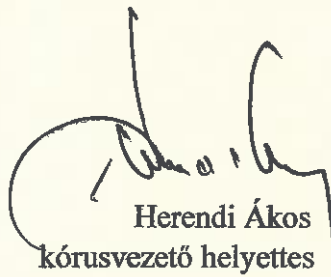 Herendi Ákos
kórusvezető helyettes